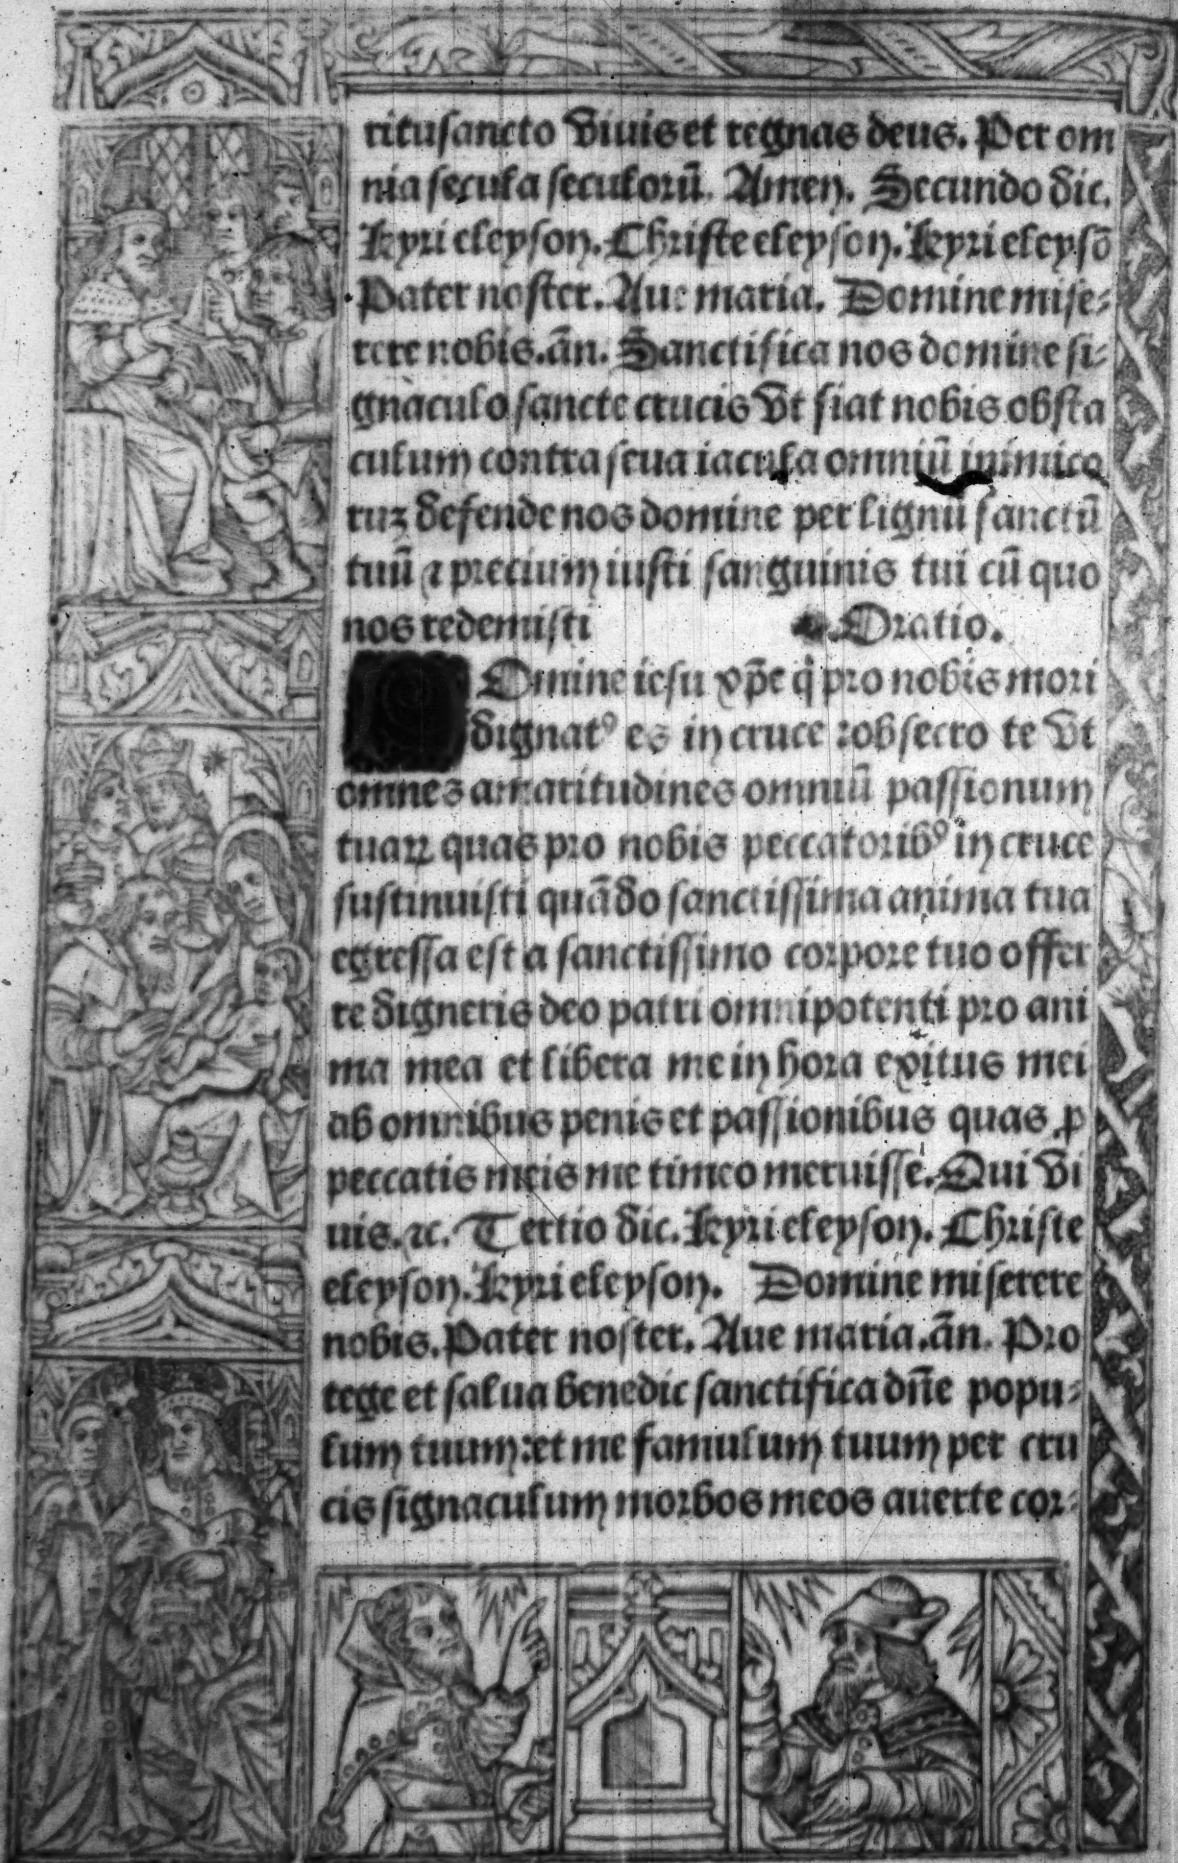 ritusancto viuis et regnas deus. Per om
nia secula seculorū. Amen. Secundo dic.
Kyri eleyson. Christe eleyson. Kyri eleysō
Pater noster. Aue maria. Domine mise-
rere nobis. an̄. Sanctifica nos domine si-
gnaculo sancte crucis vt fiat nobis obsta
culum contra seua iacula omniū inimico
ruꝫ defende nos domine per lignū sanctū
tuū ⁊ precium iusti sanguinis tui cū quo
nos redemisti Oratio.
Omine iesu xp̄e q̇ pro nobis mori
dignatꝰ es in cruce ꝛobsecro te vt
omnes amaritudines omniū passionum
tuaꝝ quas pro nobis peccatoribꝰ in cruce
sustinuisti quādo sanctissima anima tua
egressa est a sanctissimo corpore tuo offer
re digneris deo patri omnipotenti pro ani
ma mea et libera me in hora exitus mei
ab omnibus penis et passionibus quas ꝓ
peccatis meis me timeo meruisse. Qui vi
uis. ⁊c. Tertio dic. Kyri eleyson. Christe
eleyson. Kyri eleyson. Domine miserere
nobis. Pater noster. Aue maria. an̄. Pro
tege et salua benedic sanctifica dn̄e popu-
lum tuum: et me famulum tuum per cru
cis signaculum morbos meos auerte cor-